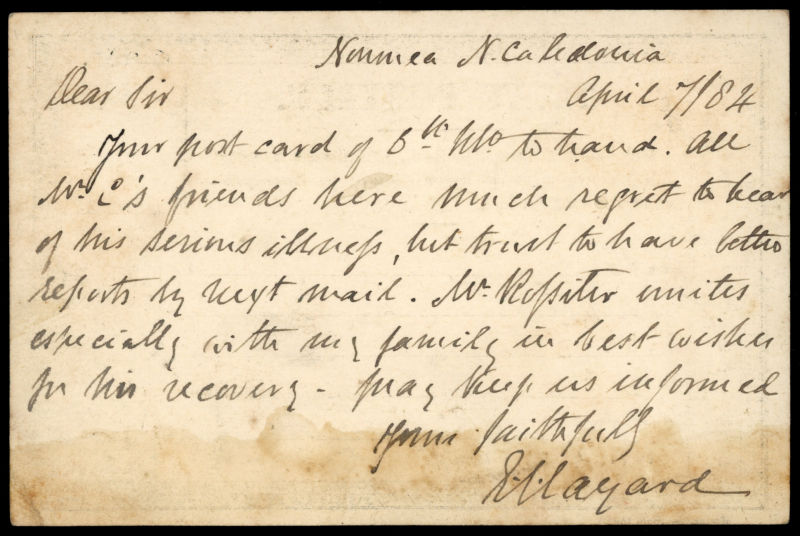 Noumea N. Caledonia
April 7/84
Dear Sir
Your post card of 6th Ulto to hand. All
Mr. C's friends here much regret to hear
of his serious illness, but trust to have better
reports by next mail. Mr. Rossiter unites
especially with my family in best wishes
for his recovery - pray keep us informed
Yours faithfully
E. L. Layard